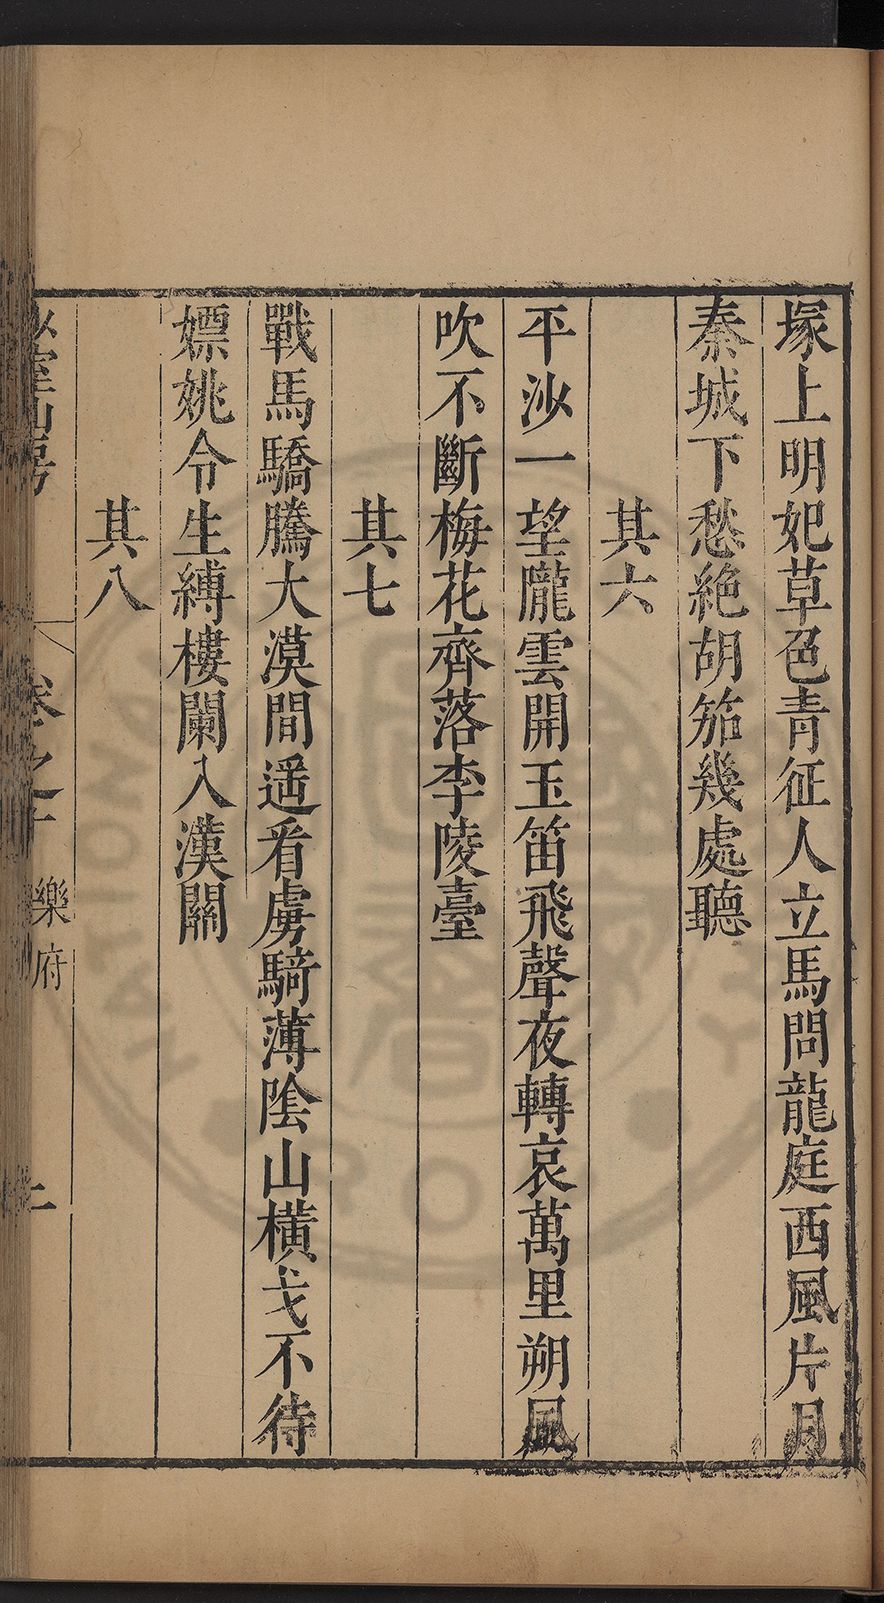 塚上明妃草色青征人立馬問龍庭西風片月
秦城下愁絶胡笳幾處聽
其六
平沙一望隴雲開玉笛飛聲夜轉哀萬里朔風
吹不斷梅花齊落李陵臺
其七
戰馬驕騰大漠間遥看虜騎薄陰山橫戈不待
嫖姚令生縛樓闌入漢關
其八
山房
卷之
樂府